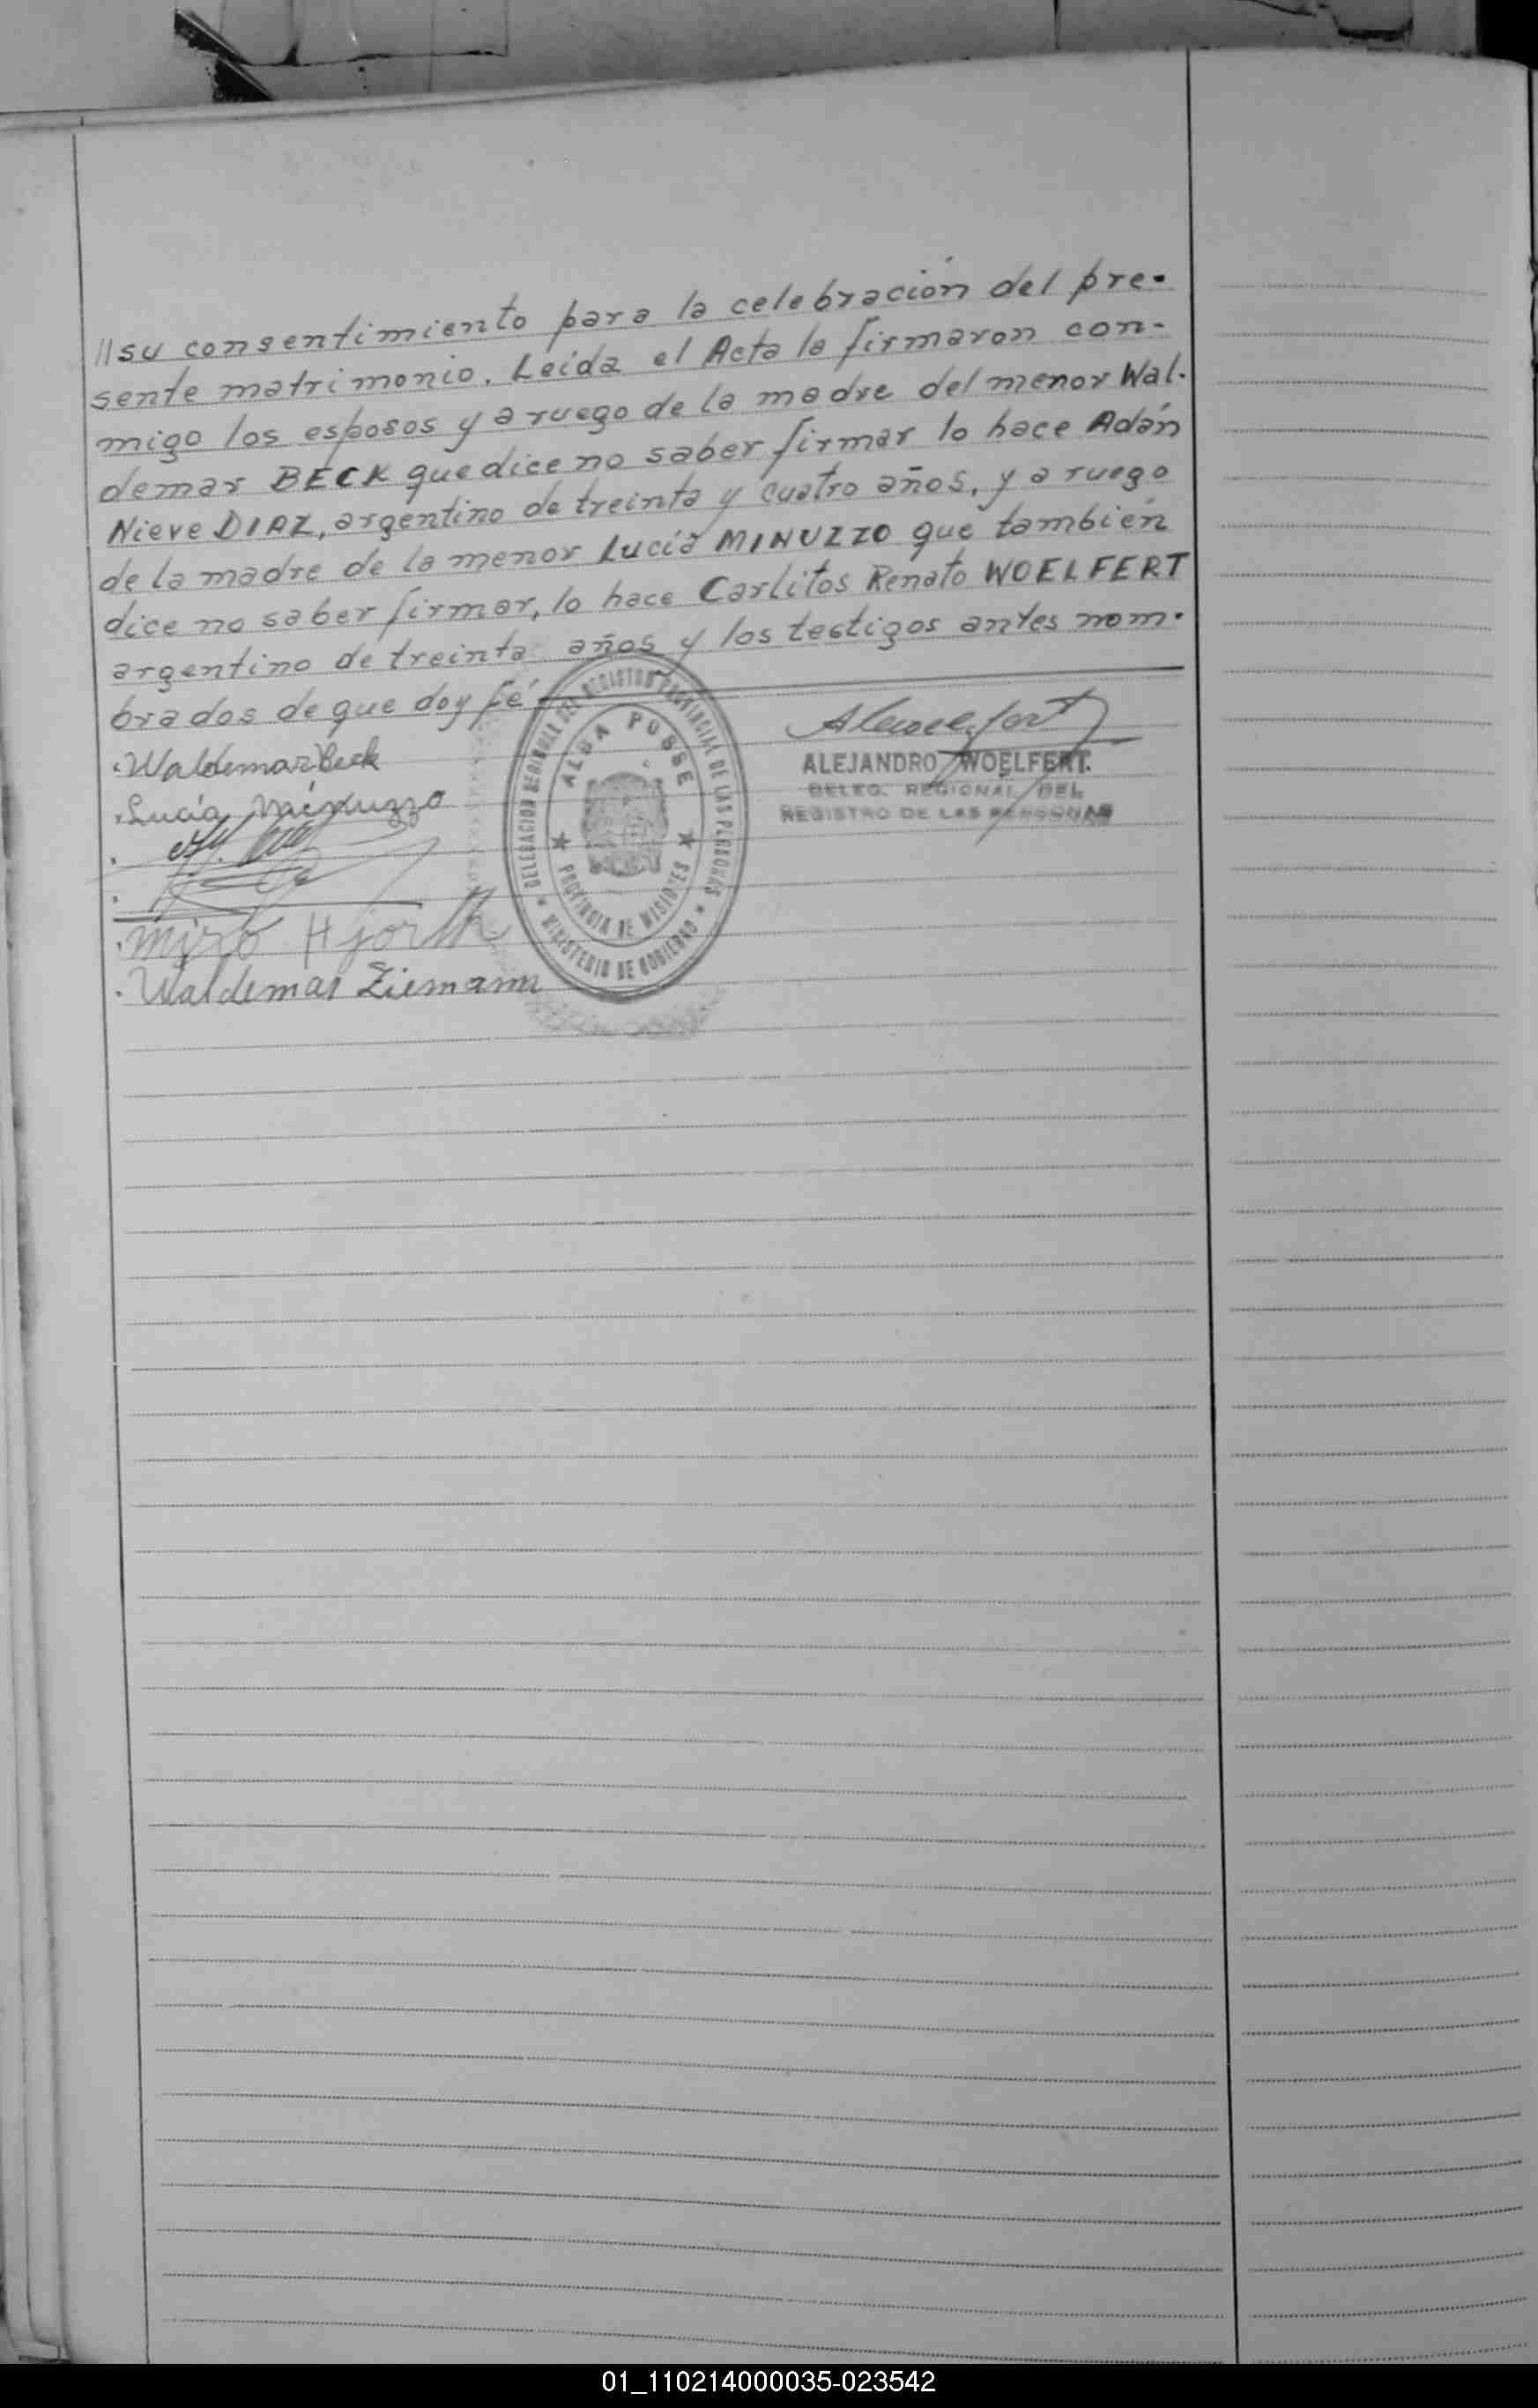 //su consentimiento para la celebración del pre-
sente matrimonio. Leída el Acta la firmaron con-
migo los esposos y a ruego de la madre del menor Wal-
demar BECK que dice no saber firmar lo hace Adán
Nieve DIAZ, argentino de treinta y cuatro años, y a ruego
de la madre de la menor Lucía MINUZZO que también
dice no saber firmar, lo hace Carlitos Renato WOELFERT
argentino de treinta años y los testigos antes nom-
brados de que doy fé
Waldemar Beck
Lucía Minuzzo
Miro Hjorth
Waldemar Ziemann
DELEGACION REGIONAL DEL REGISTRO PROVINCIAL DE LAS PERSONAS
MINISTERIO DE GOBIERNO
ALBA POSSE
PROVINCIA DE MISIONES
ALEJANDRO WOELFERT
DELEG. REGIONAL DEL
REGISTRO DE LAS PERSONAS
01_110214000035-023542